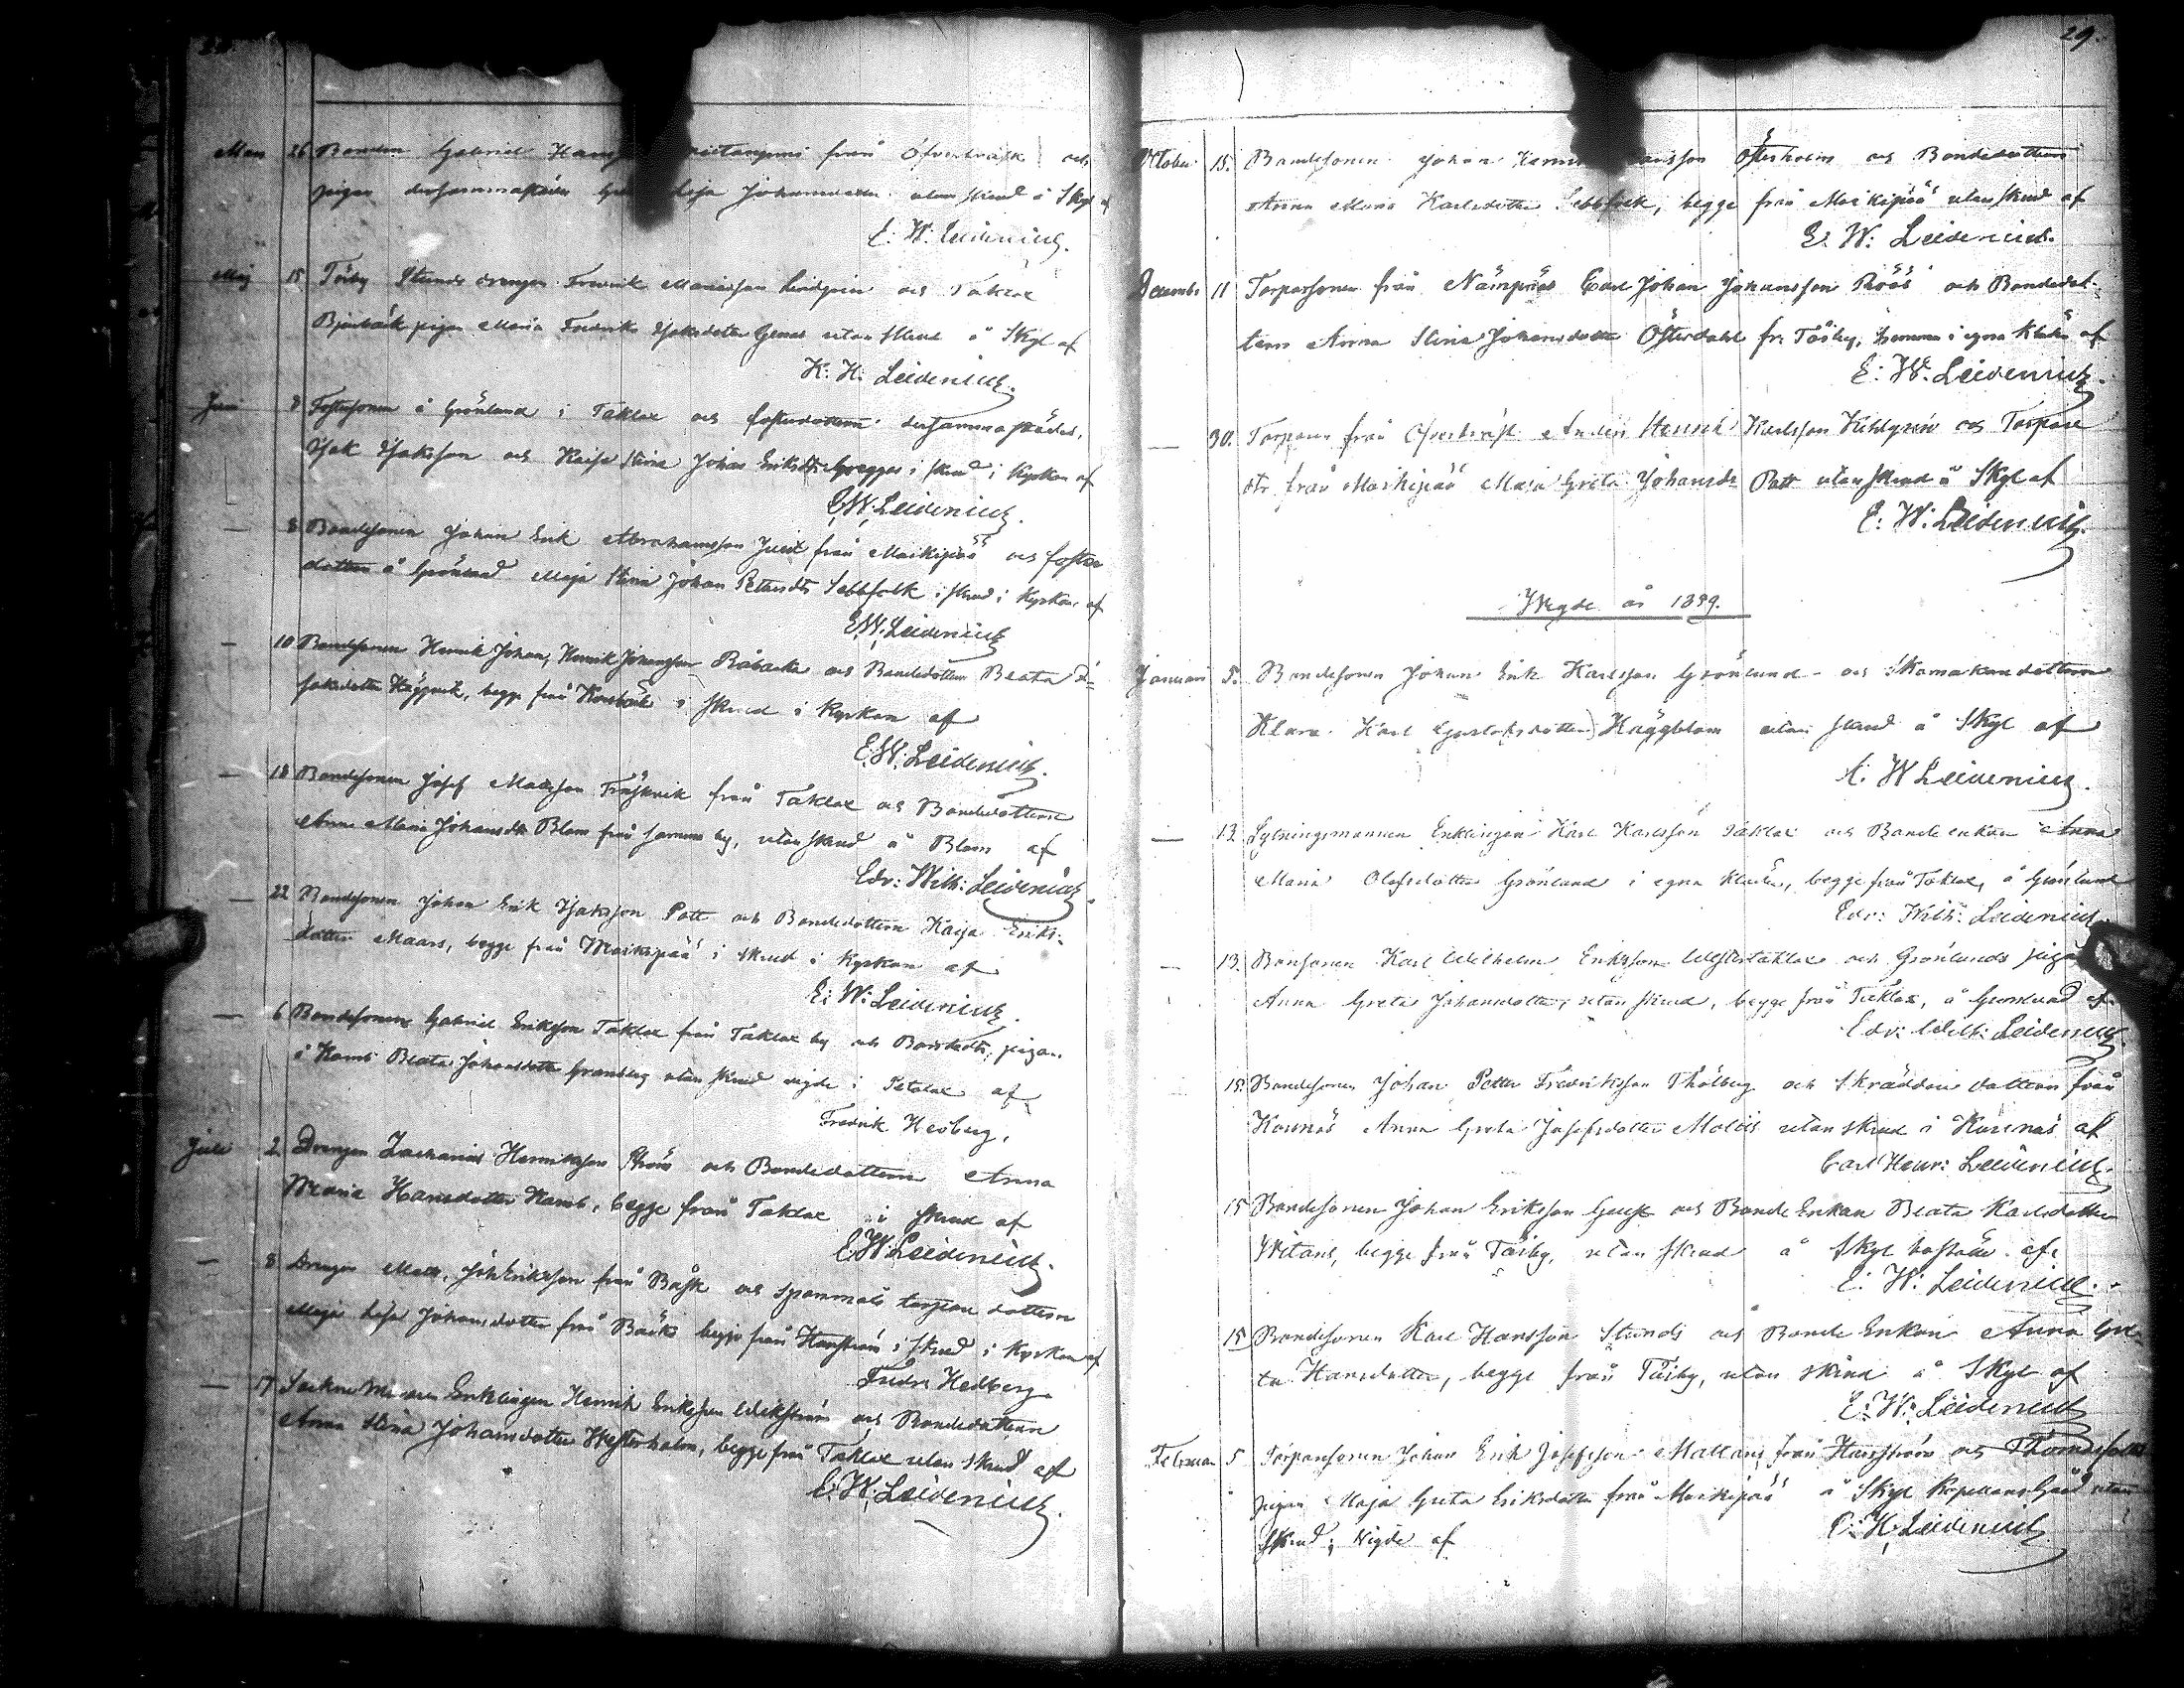 28.
Mars 26 Bonden Gabriel från Öfverträsk och
pigan dersammastädes Johansdotter utan skrud å Skyl af
E. W. Leidenius.
Maj 15 Töjby Stunds drengen Fredrik och Taklax
Björkbäk pigan Maria Fredrika utan skrud å Skyl af
K. H. Leidenius.
Juni 8 Fostersonen å Grönlund i Taklax och fosterdottern dersammastädes,
Isak Isaksson och Kajsa Stina Johan Eriksdtr i skrud i Kyrkan af
E. W. Leidenius.
— 8 Bondesonen Johan Erik Abrahamsson från Moikipää och foster
dottern å Grönlund Maja Stina Johan Petersdtr Sebbfolk i skrud i Kyrkan af
E. W. Leidenius
— 10 Bondesonen Henrik Johan, Henrik Johansson Råbacka och Bondedottern Beata I-
saksdotter Häggqvist, begge från Korsbäck i skrud i Kyrkan af
E. W. Leidenius.
— 18 Bondesonen Josef Mattsson Träskvik från Taklax och Bondedottern
Anna Maria Johansdtr Blom från samma by, utan skrud å Blom af
Edv: Wilh: Leidenius
— 22 Bondesonen Johan Erik Isaksson Patt och Bondedottern Kajsa Eriks-
dotter Maars, begge från Moikipää i skrud i Kyrkan af
E: W: Leidenius.
— 6 Bondesonen Gabriel Eriksson Taklax från Taklax by och pigan
å Kamb Beata Johansdotter Granberg utan skrud vigde i Petalax af
Fredrik Hedberg.
Juli 2 Drengen Zacharias Henriksson och Bondedottern Anna
Maria Hansdotter Kamb, begge från Taklax i skrud af
E. W. Leidenius.
— 8 Drengen Matts Joh Eriksson från Båsk och Spannmåls torpare dottern
Maja Lisa Johansdotter från Bäck begge från Harrström i skrud i Kyrkan af
Fredr Hedberg
— 17 Enklingen Henrik Eriksson Wikström och Bondedottern
Anna Stina Johansdotter Westerholm, begge från Taklax utan skrud af
E. W. Leidenius.
29.
Oktober 15. Bondesonen Johan Österholm och Bondedottern
Anna Maria Karlsdotter Sebbfolk, begge från Moikipää utan skrud af
E. W: Leidenius.
December 11 Torparsonen från Nämpnäs Carl Johan Johansson Röös och Bondedot-
tern Anna Stina Johansdotter Österdahl fr: Töjby, hemma i egna kläder af
E: W. Leidenius.
— 30. Torparen från Öfverträsk Anders Henrik Karlsson och Torpare
dtr från Moikipää Maja Greta Johansdr Patt utan skrud å Skyl af
E: W: Leidenius.
Wigde år 1899.
Januari 5. Bondesonen Johan Erik Karlsson Grönlund och Skomakaredottern
Klara Karl Gustafsdotter Häggblom utan skrud å Skyl af
E: W Leidenius.
— 13 Sytningsmannen Enklingen Karl Karlsson Taklax och Bonde enkan Anna
Maria Olofsdotter Grönlund i egna kläder, begge från Taklax, å Grönlund
Edv: Wilh: Leidenius.
— 13. Bonsonen Karl Wilhelm Eriksson Westertaklax och Grönlunds pigan
Anna Greta Johansdotter, utan skrud, begge från Taklax, å Grönlund af
Edv: Wilh: Leidenius.
15. Bondesonen Johan Petter Fredriksson Thölberg och Skräddare dottern från
Korsnäs Anna Greta Josefsdotter Moliis utan skrud i Korsnäs af
Carl Henr: Leidenius.
15 Bondesonen Johan Eriksson och Bonde Enkan Beata Karlsdotter
Witans, begge från Töjby, utan skrud å Skyl boställe af
E: W: Leidenius.
15 Bondesonen Karl Hansson Stunds och Bonde Enkan Anna Gre-
ta Hansdotter, begge från Töjby, utan skrud å Skyl af
E: W: Leidenius
Februari 5 Torparsonen Johan Erik Josefsson Mattans från Harrström och
pigan Maja Greta Eriksdotter från Moikipää å Skyl Kapellans Gård utan
skrud, vigde af E: W. Leidenius